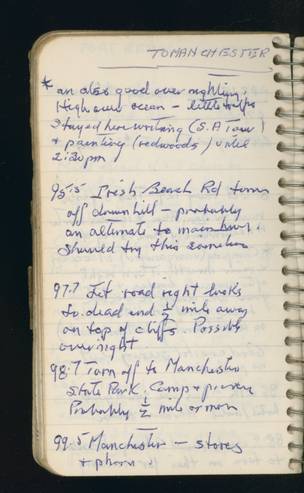 TO MANCHESTER
* an also good overnighting.
High over ocean – little
Stayed here writing (S.A. Tour)
+ painting (redwoods) until
2:30pm
95.5 Irish Beach Rd turns
off downhill – probably
an alternate to main hwy.
Should try this sometime
97.7 Jct road right looks
to dead end ½ mile away
on top of cliffs. Possible
overnight
98.7 Turn off to Manchester
State Park. Camp + picnic
Probably ½ mile or more
99.5 Manchester – stores
+ phone